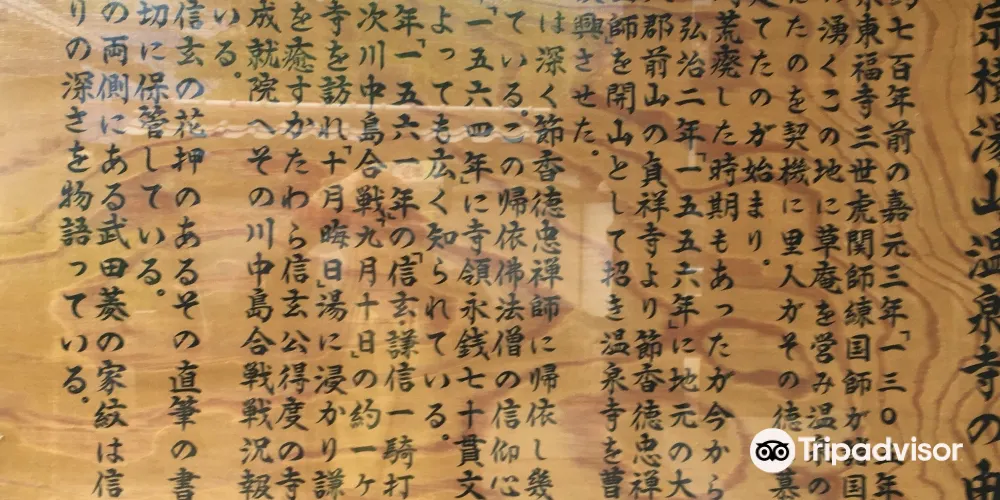 横湯山温泉寺の由
七百年前の嘉元三年「一三〇五年
東福寺三世虎関師練国師が諸国
の湧くこの地に草庵を営み温泉の
たのを契機に里人がその徳慕
てたのが始まり。
荒廃した時期もあったが今から
弘治二年「一五五六年」に地元の大
郡前山の貞祥寺より節香徳忠禅
師」を開山として招き温泉寺を曹
興させた。
は深く節香徳忠禅師に帰依し幾
ている。この帰依佛法僧の信仰心
「一五六四年」に寺領永銭七十貫文
よっても広く知られている。
年「一五六一年」の「信玄・謙信一騎打
次川中島合戦「九月十日」の約一ヶ
寺を訪れ「十月晦日」湯に浸かり謙
を癒すかたわら信玄公得度の寺
成就院へその川中島合戦戦況報
いる。
信玄の花押のあるその直筆の書
切に保管している。
の両側にある武田菱の家紋は信
りの深さを物語っている。
Tripadvisor